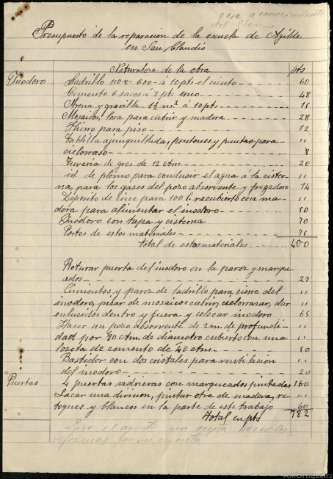 Presupuesto de la reparacion de la escuela de Ajilde
en San Claudio
Naturaleza de la obra pts
Inodoro Ladrillo 600 à 10 pts el ciento 60
Cemento 6 sacos à 8 pts saco 48
Arena y gravilla 1½ m³ à 10 pts 15
Mosaico, losa para cubrir y madera 28
Hierro para piso 12
Tablilla, puntones y puntas para
cielorraso 8
Tuveria de gres de 12 ctm 20
id. de plomo para conducir el agua à la cister
na, para los gases del pozo absorvente y fregadero 74
Deposito de cinc para 100 l. recubierto con ma
dera para alimentar el inodoro 50
Inodoro con tapa y cisterna 70
Portes de estos materiales
total de estos materiales 450
Roturar puerta del inodoro en la pared y marque
ado 20
Cimientos y pared de ladrillo para cierre del
inodoro, pisar de mosaico cubrir, cielorrasar, dar
dentro y fuera y colocar inodoro 65
Hacer un pozo absorvente de 2 m. de profundi
dad por 90 ctm de diametro cubierto con una
loseta de cemento de
Bastidor con dos cristales para ventilacion
del inodoro 20
Puertas 4 puertas vidrieras con marqueados pintadas 160
Sacar una division, pintar otra de madera, re
toques y blanceos en la parte de este trabajo 60
total en pts 782